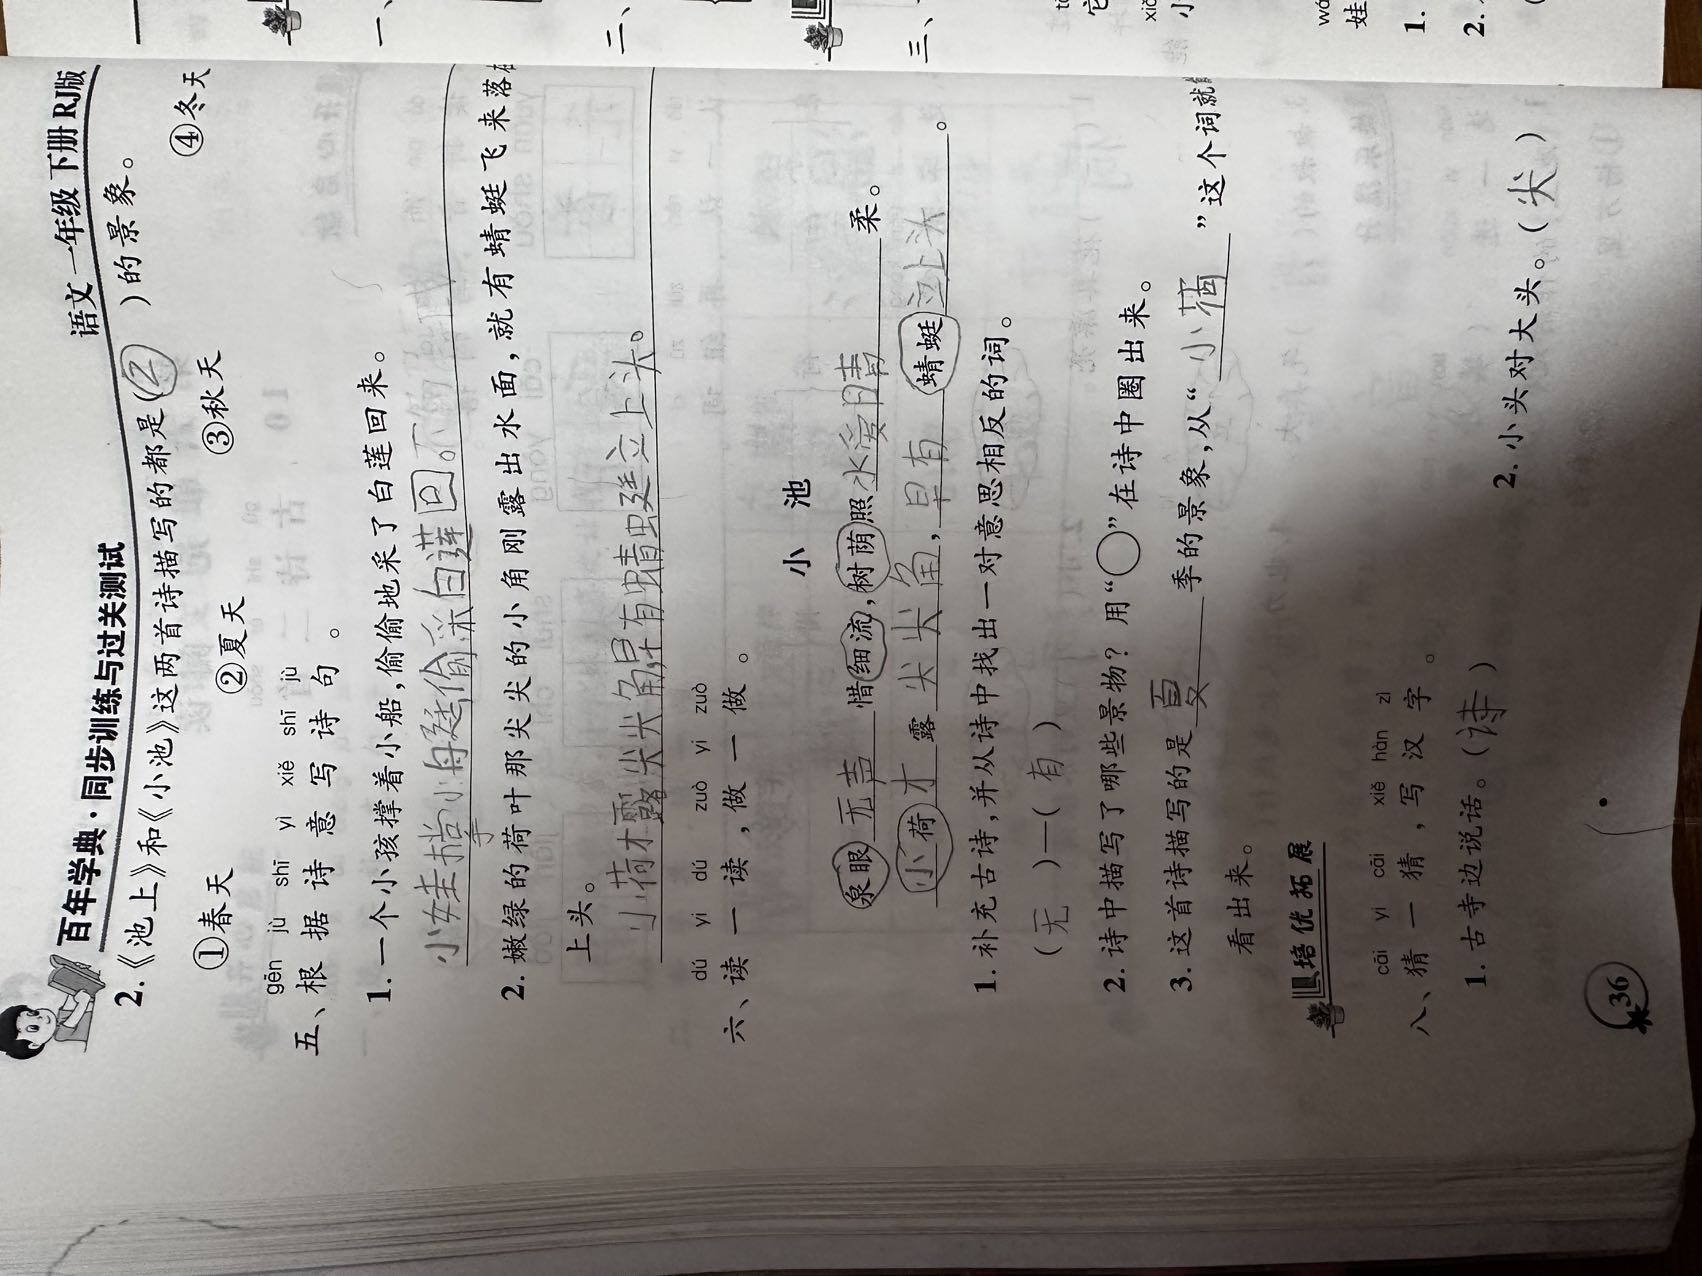 百年学典·同步训练与过关测试
语文 一年级 下册 RJ版
2.《池上》和《小池》这两首诗描写的都是(②)的景象。
①春天 ②夏天 ③秋天 ④冬天
gēn jù shī yì xiě shī jù
五、根据诗意写诗句。
1.一个小孩撑着小船,偷偷地采了白莲回来。
偷采白莲回。
2.嫩绿的荷叶那尖尖的小角刚露出水面,就有蜻蜓飞来落在
上头。
露尖尖角早有蜻蜓立上头。
dú yi dú zuò yi zuò
六、读一读,做一做。
小 池
泉眼无声惜细流,树荫照水爱晴柔。
小荷才露尖尖角,早有蜻蜓立上头。
1.补充古诗,并从诗中找出一对意思相反的词。
(无)—(有)
2.诗中描写了哪些景物?用“○”在诗中圈出来。
3.这首诗描写的是夏季的景象,从“小荷”这个词就
看出来。
培优拓展
cāi yi cāi xiě hàn zì
八、猜一猜,写汉字。
1.古寺边说话。(诗)
2.小头对大头。(尖)
36
一、
二、
三、
它
小
娃
1.
2.